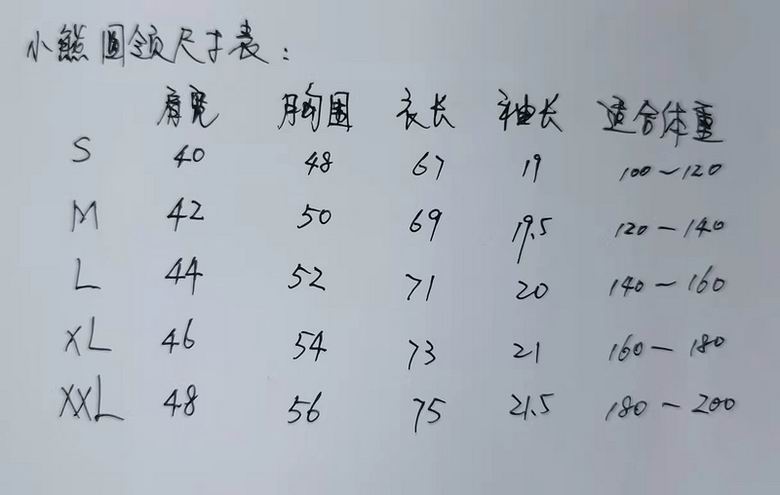 小熊圆领尺寸表:
肩宽 胸围 衣长 袖长 适合体重
S 40 48 67 19 100~120
M 42 50 69 19.5 120-140
L 44 52 71 20 140-160
XL 46 54 73 21 160-180
XXL 48 56 75 21.5 180-200